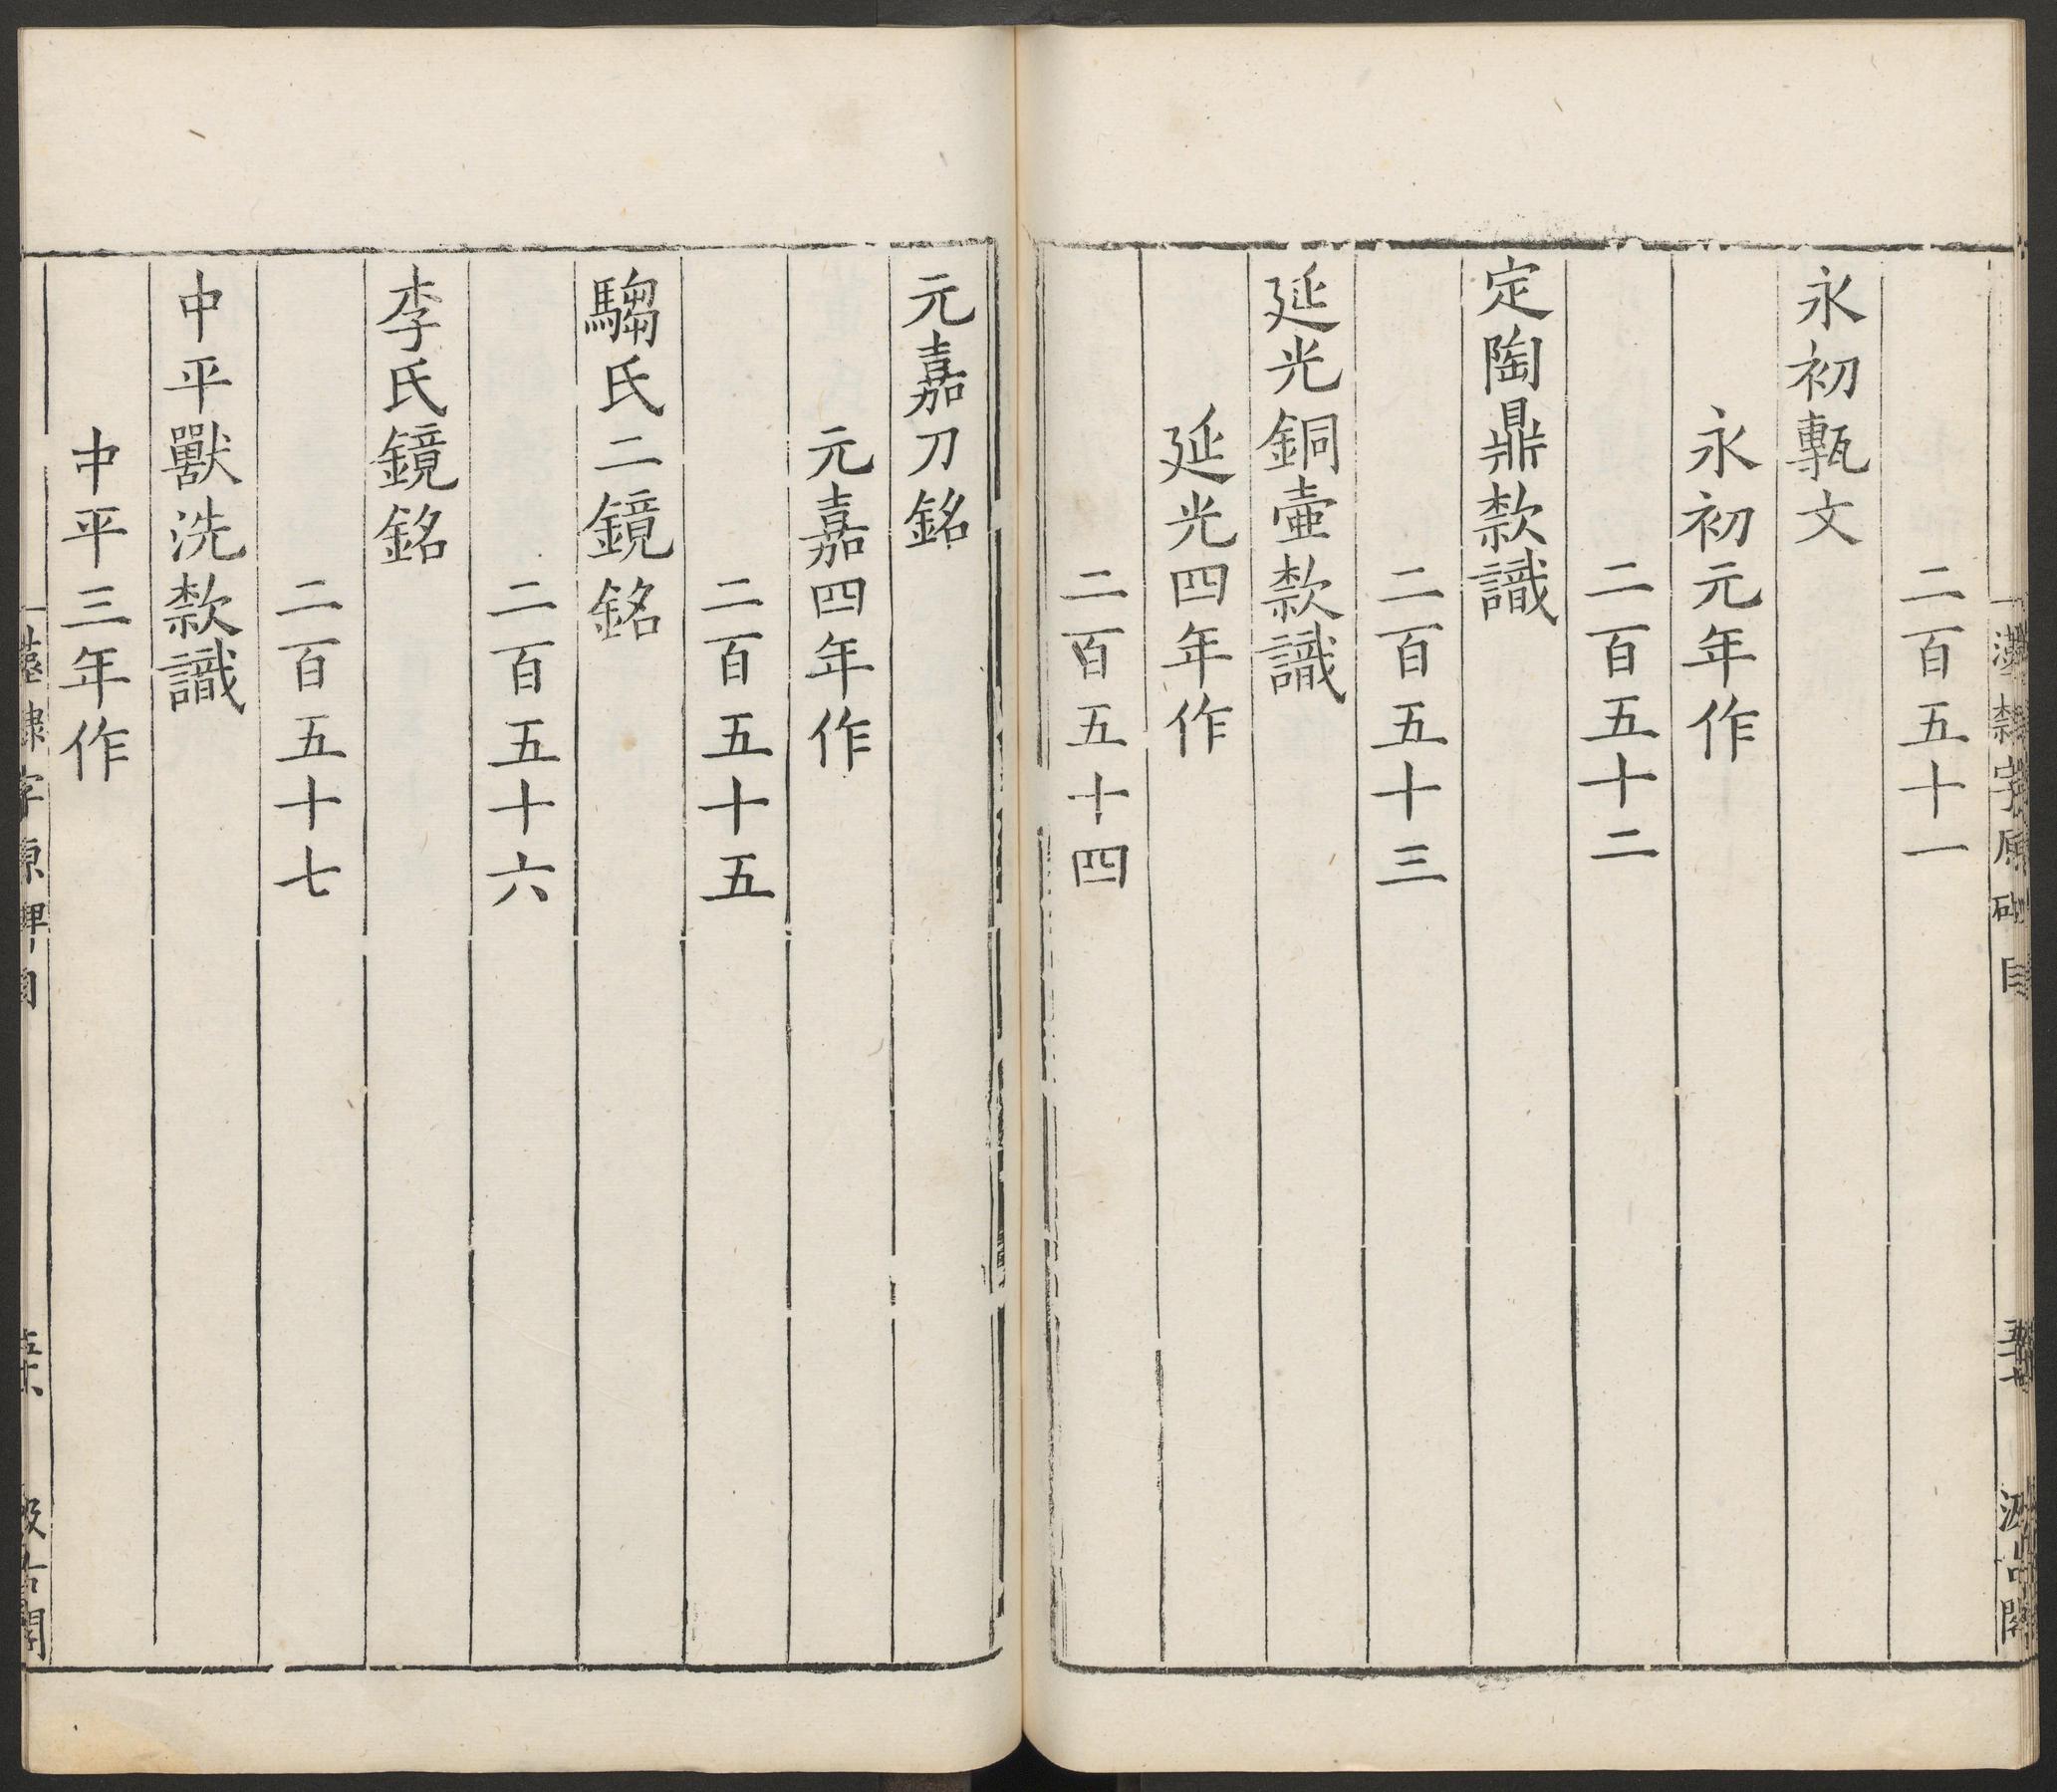 二百五十一
永初甎文
永初元年作
二百五十二
定陶鼎款識
二百五十三
延光銅壷款識
延光四年作
二百五十四
元嘉刀銘
元嘉四年作
二百五十五
騶氏二鏡銘
二百五十六
李氏鏡銘
二百五十七
中平獸洗款識
中平三年作